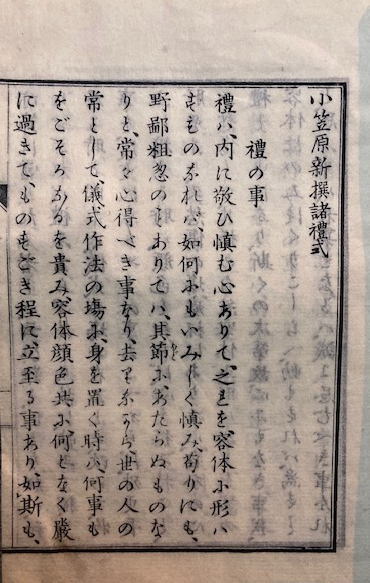 小笠原新撰諸禮式
禮の事
禮ハ、内に敬ひ慎む心ありて、之を容体に形ハ
すものなれバ、如何にもいみじく慎み、苟りにも、
野鄙粗怱のことありてハ、其節に、あたらぬものな
りと、常々心得べき事なり、去りながら世の人の
常として、儀式作法の塲に、身を置く時ハ、何事も
をごそかなるを貴み、容体顔色共に、何となく嚴
に過きて、ものもごき程に、立至る事あり、如斯も、